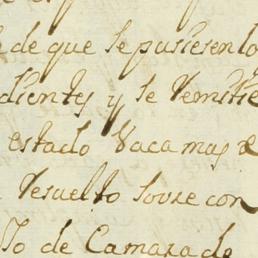 de que se pusiesen lo
dientes y se Remitie
estado Vaca mas de
Resuelto sovre con
de Camara de